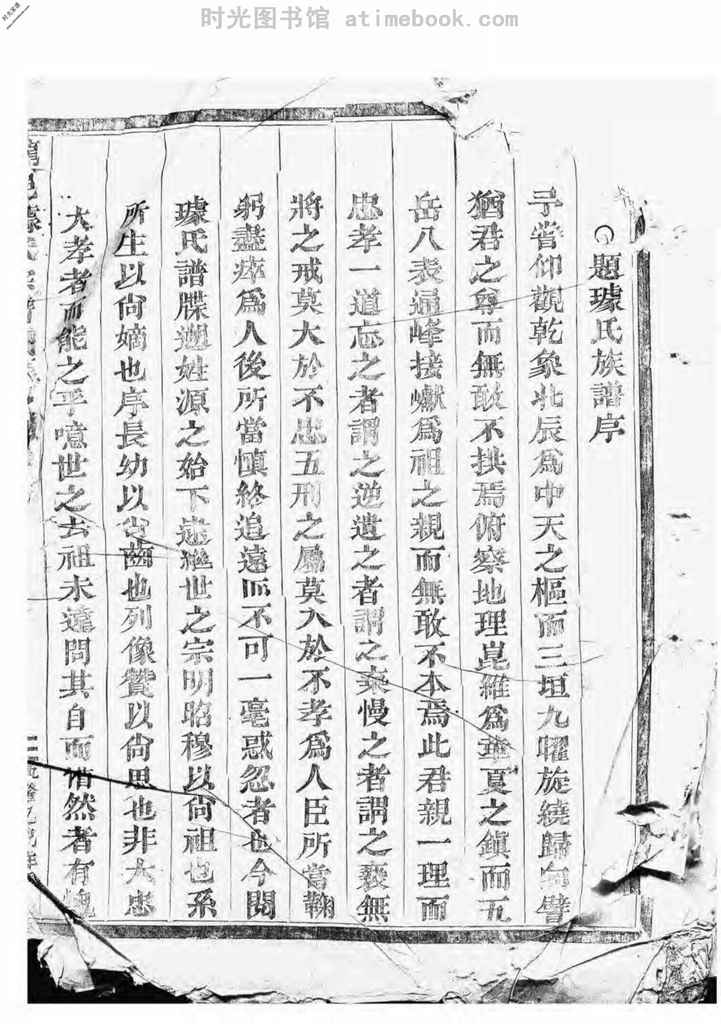 时光图书馆 atimebook.com
題璩氏族譜序
予嘗仰觀乾象北辰為中天之樞而三垣九曜旋繞歸向譬
猶君之尊而無敢不拱焉俯察地理崑維為華夏之鎮而五
岳八表逼峰接巘為祖之親而無敢不本焉此君親一理而
忠孝一道忘之者謂之逆遺之者謂之棄慢之者謂之褻無
將之戒莫大於不忠五刑之屬莫大於不孝為人臣所當鞠
躬盡瘁為人後所當慎終追遠而不可一毫惑忽者也今閱
璩氏譜牒遡姓源之始下逮繼世之宗明昭穆以尙祖也系
所生以尙嫡也序長幼以尙齒也列像贊以尙思也非大忠
大孝者而能之乎噫世之去祖未遠問其自而惛然者有愧